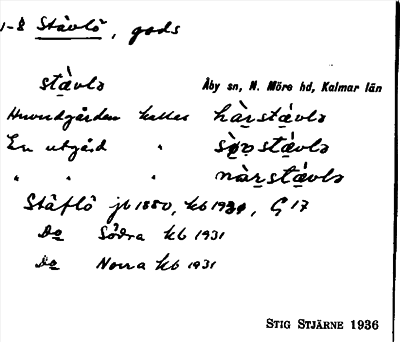 1-8 Stävlö, gods
stä̀vlə Åby sn, N. Möre hd, Kalmar län
Huvudgården kallas hæ̀rstä́vlə
En utgård " sø̀rstä́vlə
" " " nàrstä́vlə
Stäflö jb 1880, kb 1930, G 17
Do Södra kb 1931
Do Norra kb 1931
STIG STJÄRNE 1936